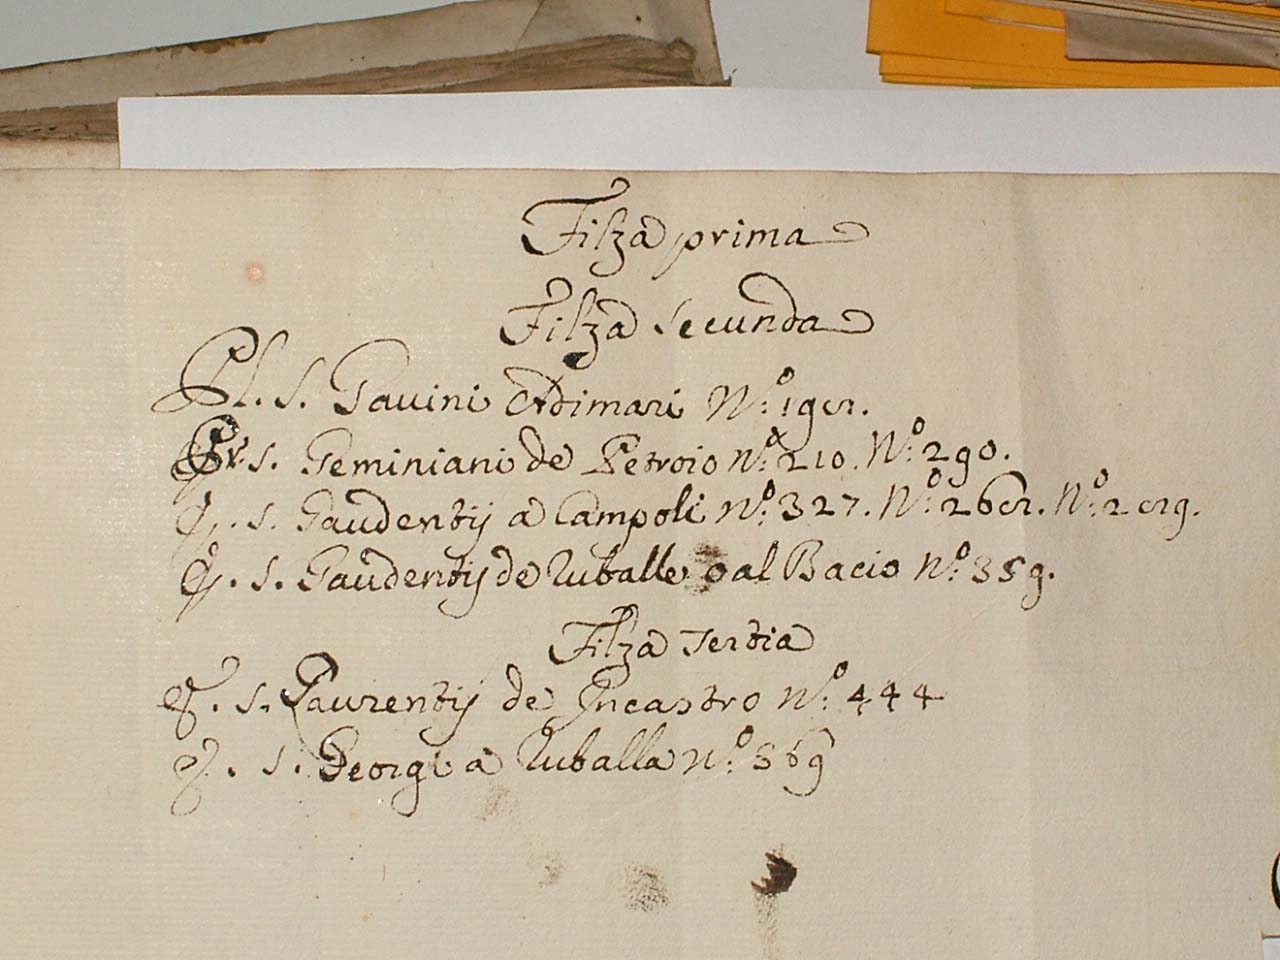 Filza prima
Filza Secunda
Pl. S. Gavini Adimari N.º 19
Pr. S. Geminiani de Petroio N.º 210. N.º 290.
S. Gaudentij a Campoli N.º 327. N.º 26 N.º 2
S. Gaudentij de Ruballe o al Bacio N.º 359.
Filza Tertia
S. Laurentij de Incastro N.º 444
S. Georgi a Ruballa N.º 369